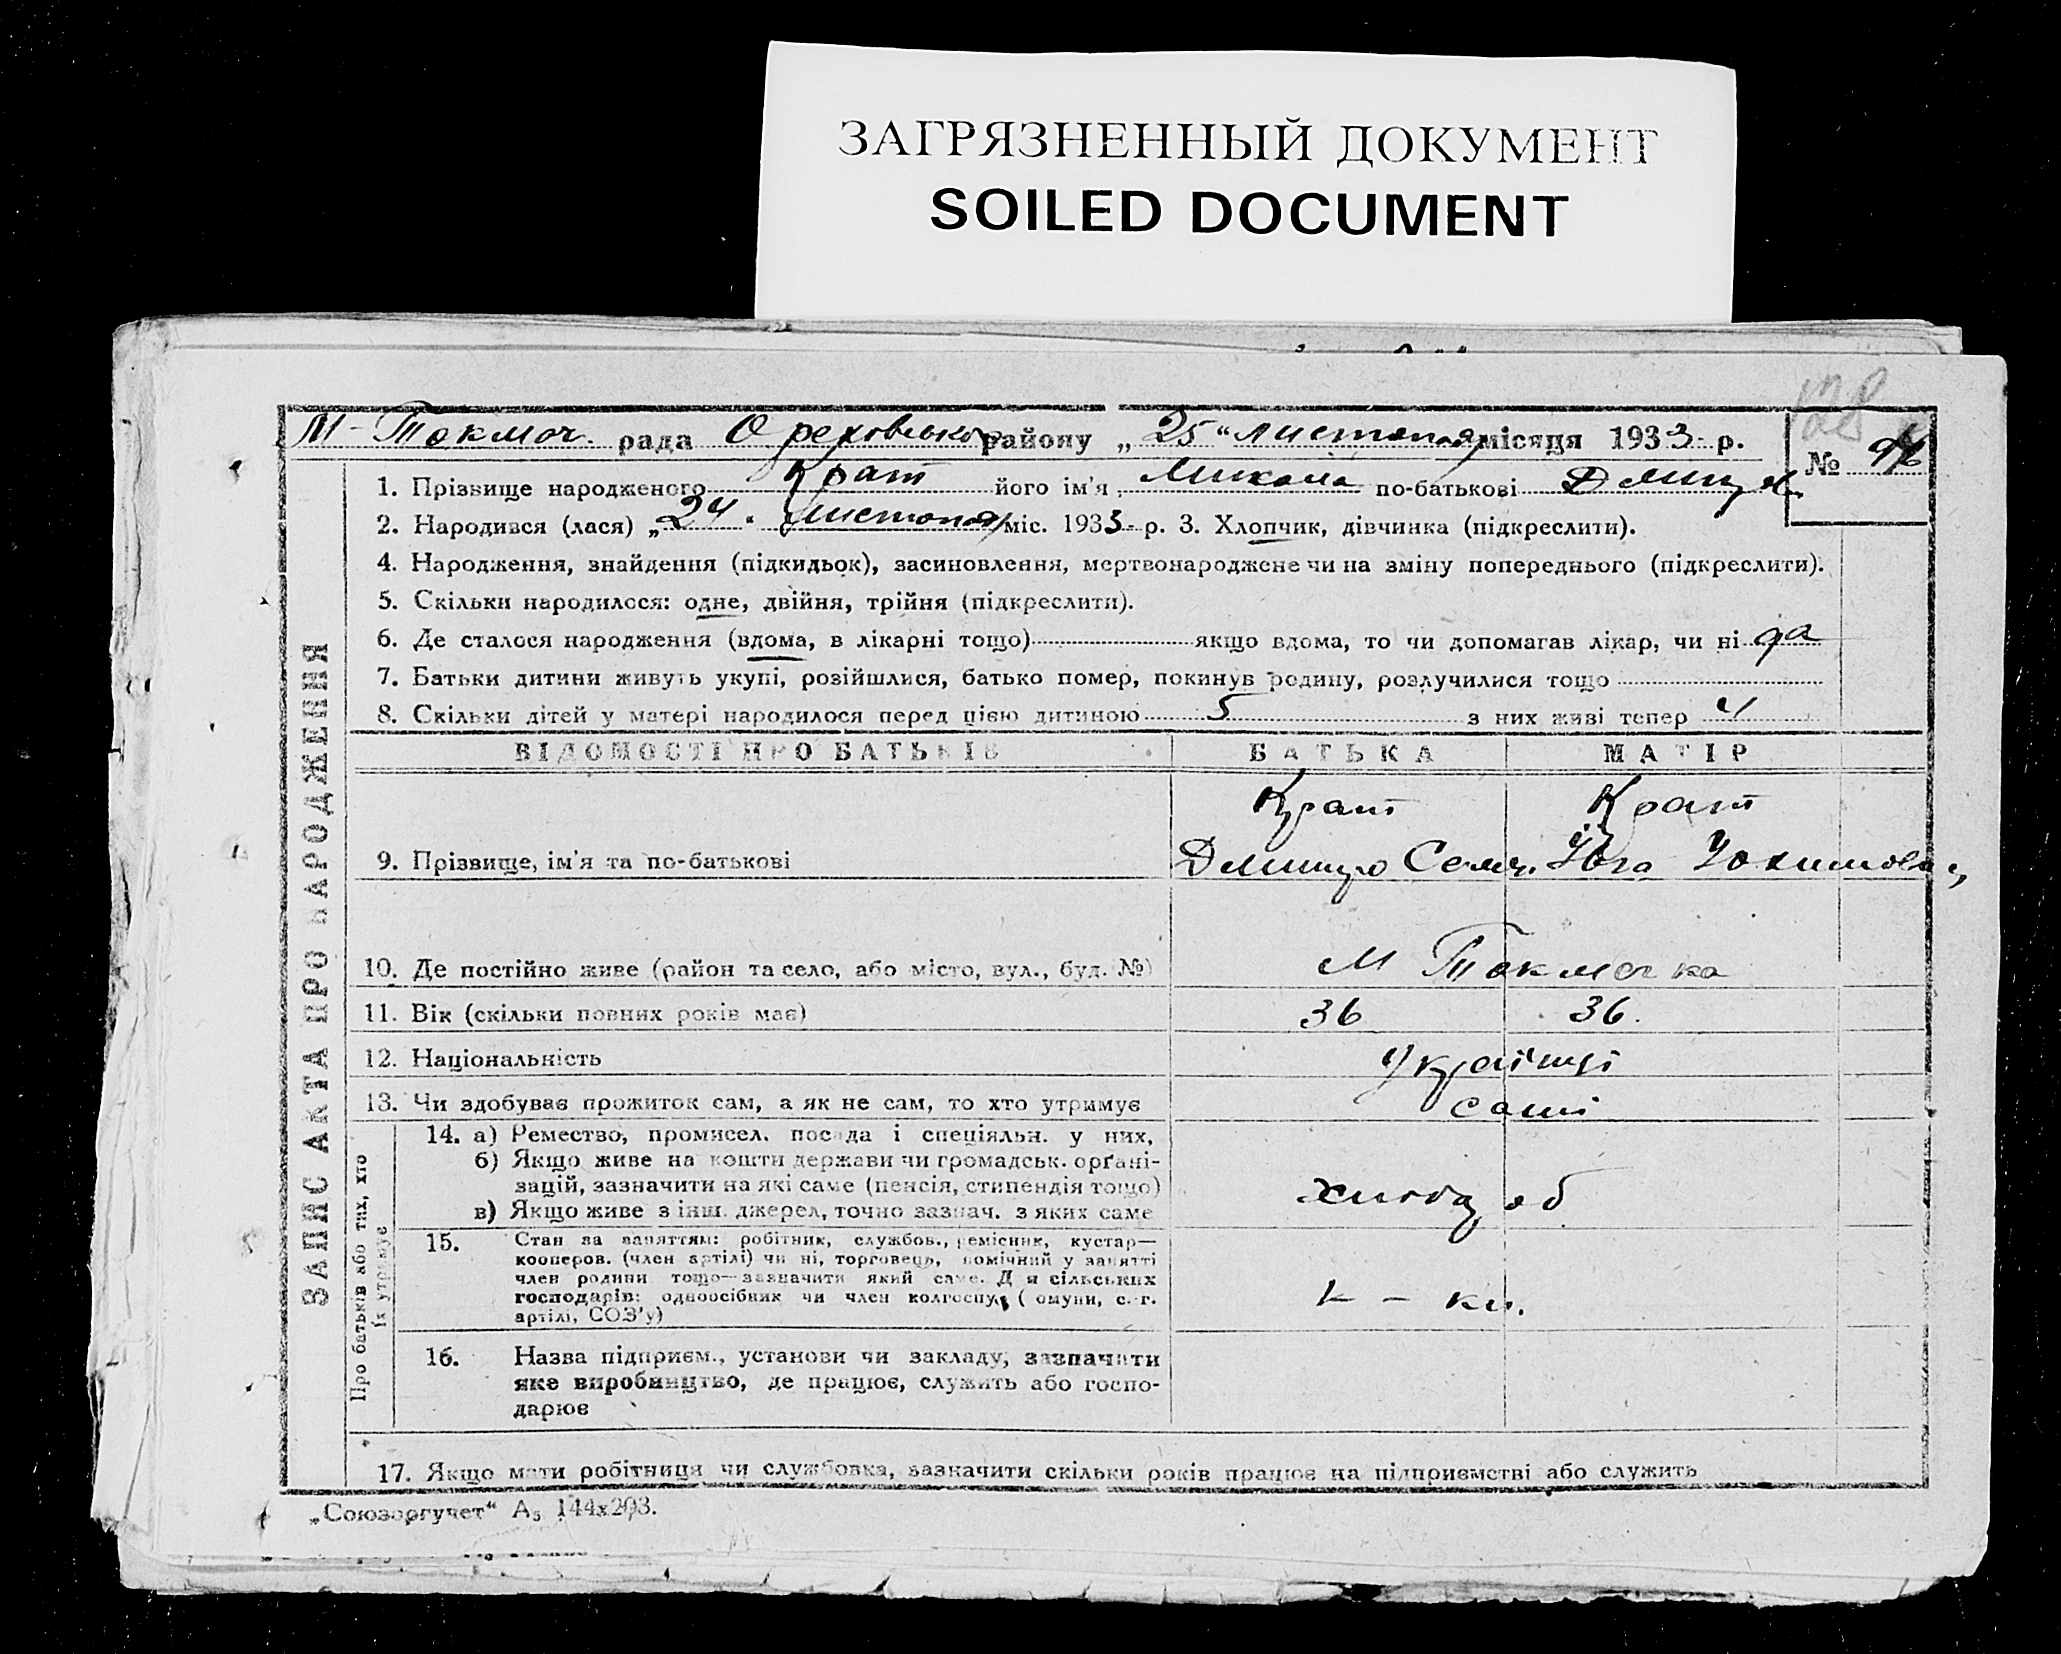 ЗАГРЯЗНЕННЫЙ ДОКУМЕНТ
SOILED DOCUMENT
М-Токмач. рада Ореховського району „25“ листопад місяця 1933 р.
№
1. Прізвище народженого Крат його ім'я Микола по-батькові Дмитр.
2. Народився (лася) „24. листопад міс. 1933 р. 3. Хлопчик, дівчинка (підкреслити).
4. Народження, знайдення (підкидьок), засиновлення, мертвонароджене чи на зміну попереднього (підкреслити).
5. Скільки народилося: одне, двійня, трійня (підкреслити).
6. Де сталося народження (вдома, в лікарні тощо) якщо вдома, то чи допомагав лікар, чи ні да
7. Батьки дитини живуть укупі, розійшлися, батько помер, покинув родину, розлучилися тощо
8. Скільки дітей у матері народилося перед цією дитиною 5 з них живі тепер 4
ВІДОМОСТІ ПРО БАТЬКІВ БАТЬКА МАТІР
Крат Крат
9. Прізвище, ім'я та по-батькові Дмитро Сем.
10. Де постійно живе (район та село, або місто, вул., буд. №) М Токмачка
11. Вік (скільки повних років має) 36 36.
12. Національність Українці
13. Чи здобуває прожиток сам, а як не сам, то хто утримує самі
14. а) Ремество, промисел. посада і спеціяльн. у них,
б) Якщо живе на кошти держави чи громадськ. орґані-
зацій, зазначити на які саме (пенсія, стипендія тощо)
в) Якщо живе з інш. джерел, точно зазнач. з яких саме
15. Стан за заняттям: робітник, службов., ремісник, кустар—
кооперов. (член артілі) чи ні, торговець, помічний у занятті
член родини тощо—зазначити який саме. Для сільських
господарів: одноосібник чи член колгоспу, (комуни, с.-г.
артілі, СОЗ'у)
к - ки.
16. Назва підприєм., установи чи закладу, зазначити
яке виробництво, де працює, служить або госпо-
дарює
17. Якщо мати робітниця чи службовка, зазначити скільки років працює на підприємстві або служить
ЗАПИС АКТА ПРО НАРОДЖЕННЯ
Про батьків або тих, хто
їх утримує
„Союзоргучет“ А5 144х203.